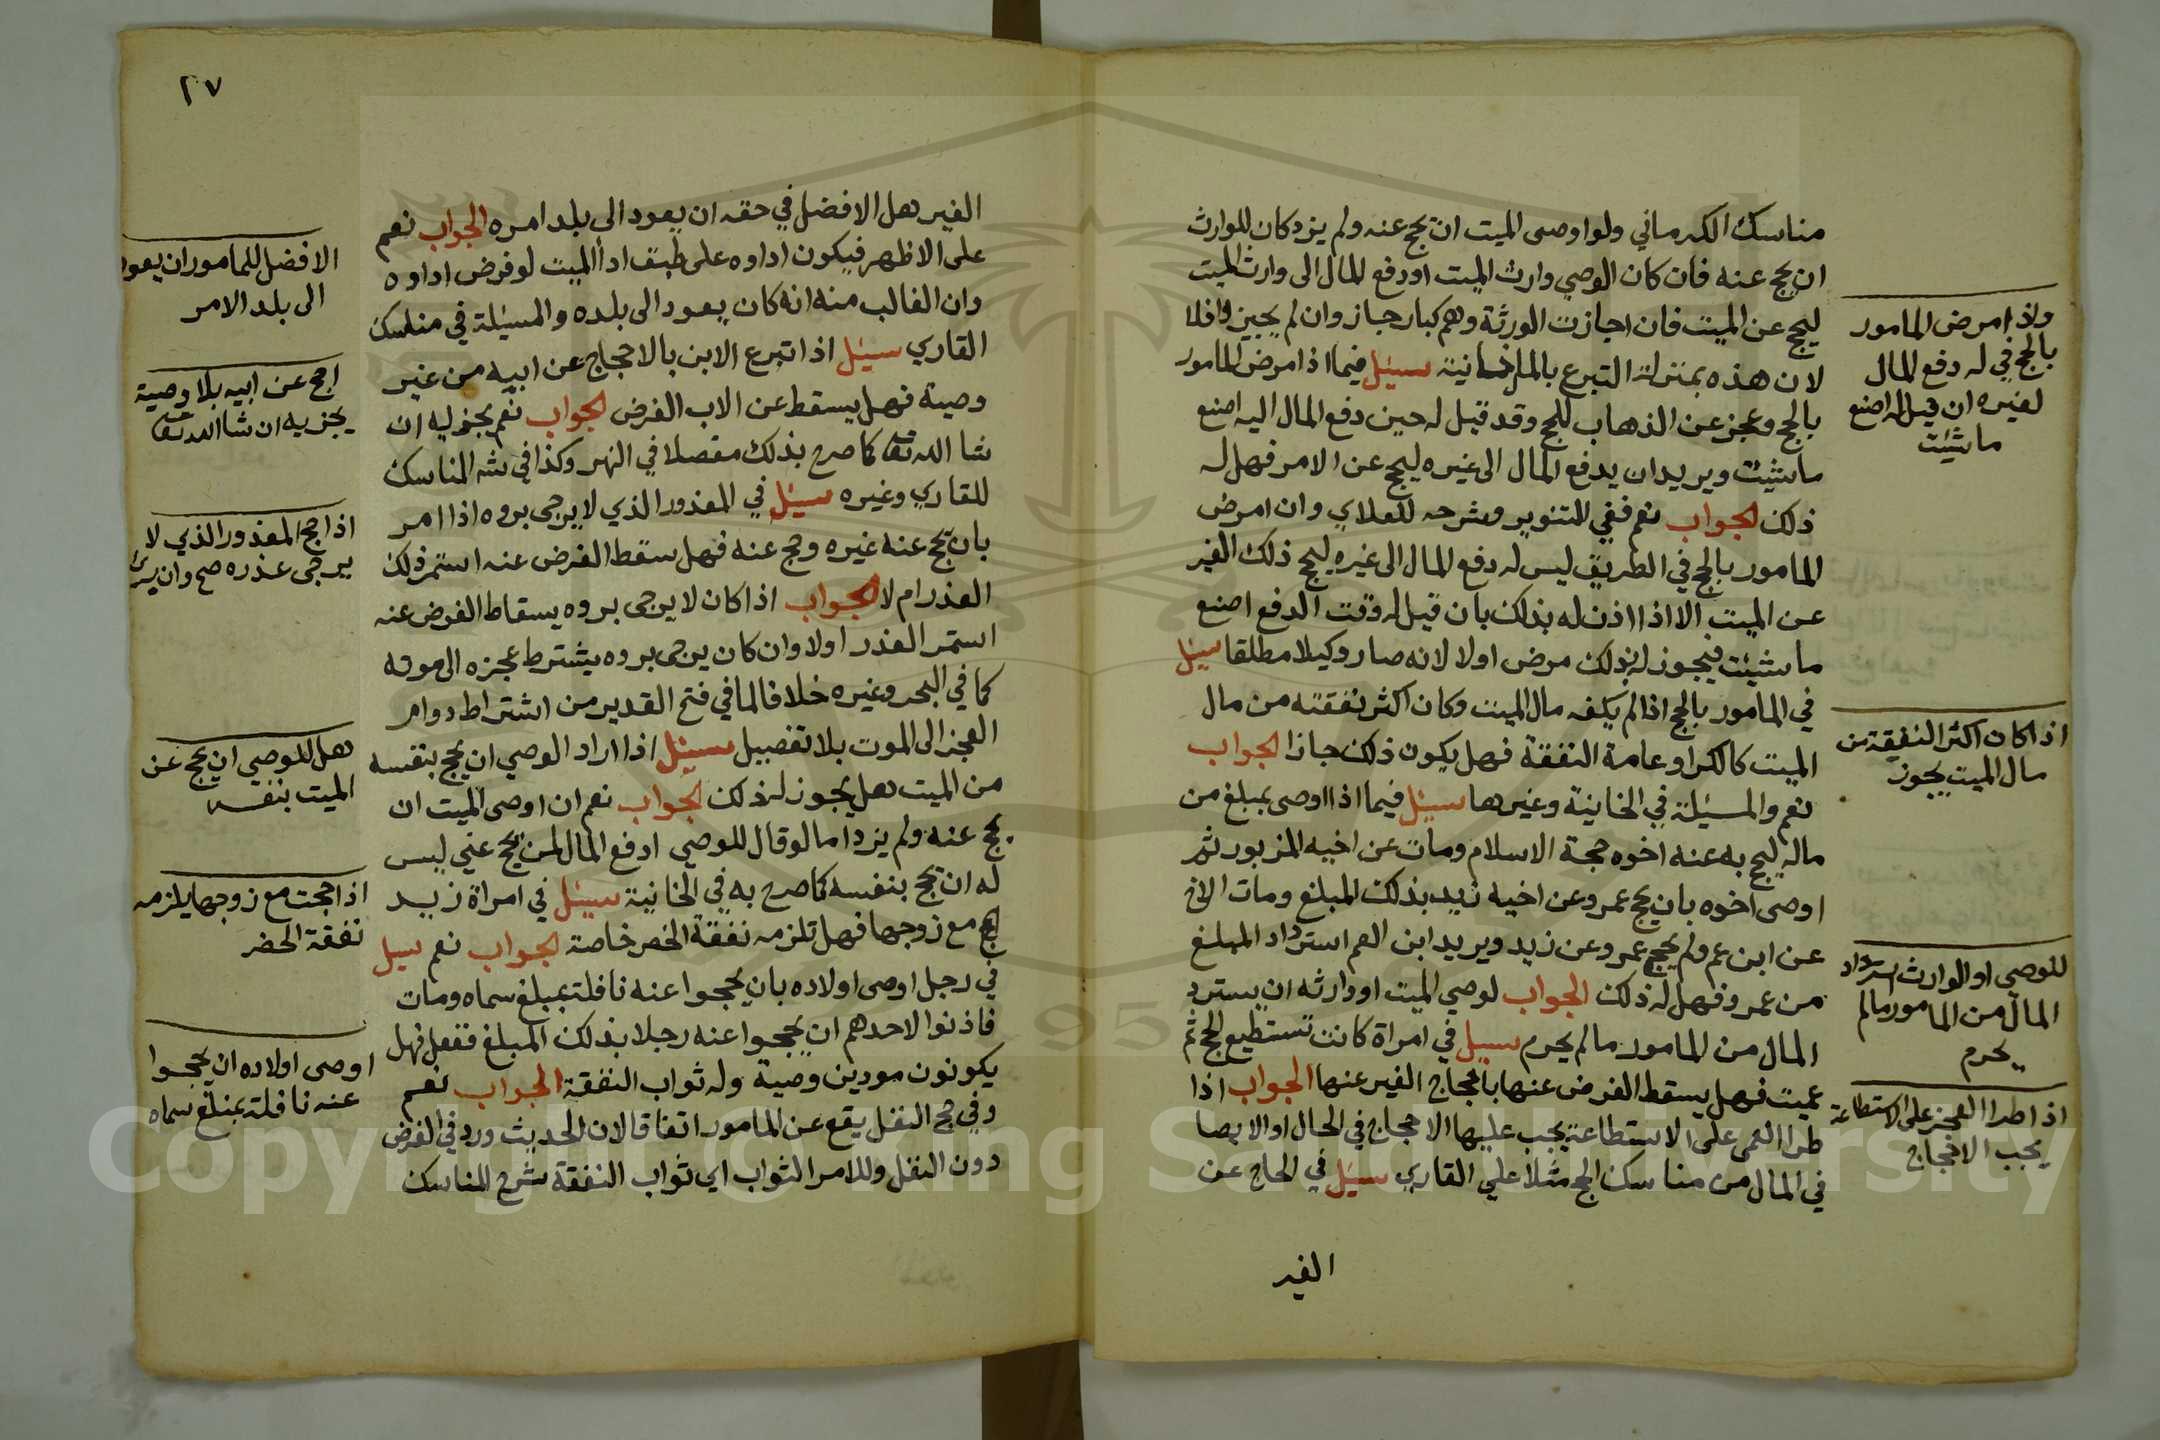 مناسك الكرماني ولو اوصى الميت ان يحج عنه ولم يزد كان للوارث
ان يحج عنه فان كان الوصي وارث الميت او دفع المال الى وارث الميت
ليحج عن الميت فان اجازت الورثة وهم كبار جاز وان لم يجيزوا فلا
لان هذه بمنزلة التبرع بالمال خانية سئل فيما اذا مرض المامور
بالحج وعجز عن الذهاب للحج وقد قيل له حين دفع المال اليه اصنع
ما شئت ويريد ان يدفع المال الى غيره ليحج عن الامر فهل له
ذلك الجواب نعم ففي التنوير وشرحه للعلاي وان مرض
المامور بالحج في الطريق ليس له دفع المال الى غيره ليحج ذلك الغير
عن الميت الا اذا اذن له بذلك بان قيل له وقت الدفع اصنع
ما شئت فيجوز له ذلك مرض اولا لانه صار وكيلا مطلقا سئل
في المامور بالحج اذا لم يكفه مال الميت وكان اكثر نفقته من مال
الميت كالكرا وعامة النفقة فهل يكون ذلك جازا الجواب
نعم والمسئلة في الخانية وغيرها سئل فيما اذا اوصى بمبلغ من
ماله ليحج به عنه اخوه حجة الاسلام ومات عن اخيه المزبور ثم
اوصى اخوه بان يحج عمرو عن اخيه زيد بذلك المبلغ ومات الاخ
عن ابن عم ولم يحج عمرو عن زيد ويريد ابن العم استرداد المبلغ
من عمرو فهل له ذلك الجواب لوصي الميت او وارثه ان يسترد
المال من المامور ما لم يحرم سئل في امراة كانت تستطيع الحج ثم
عميت فهل يسقط الفرض عنها باحجاج الغير عنها الجواب اذا
طرا العمى على الاستطاعة يجب عليها الاحجاج في الحال او الايصا
في المال من مناسك الحج مثلا علي القاري سئل في الحاج عن
الغير
واذا مرض المامور
بالحج في له دفع المال
لغيره ان قيل له اصنع
ما شئت
اذا كان اكثر النفقة من
مال الميت يجوز
للوصي او الوارث استرداد
المال من المامور مالم
يحرم
اذا طرا العجز على الاستطاعة
يجب الاحجاج
٢٧
الغير هل الافضل في حقه ان يعود الى بلد امره الجواب نعم
على الاظهر فيكون اداوه على طبق ادا الميت لو فرض اداوه
وان الغالب منه انه كان يعود الى بلده والمسئلة في مناسك
القاري سئل اذا تبرع الابن بالاحجاج عن ابيه من غير
وصية فهل يسقط عن الاب الفرض الجواب نعم يجزيه ان
شا الله تعا كما صرح بذلك مفصلا في النهر وكذا في شر المناسك
للقاري وغيره سئل في المعذور الذي لا يرجى بروه اذا امر
بان يحج عنه غيره وحج عنه فهل سقط الفرض عنه استمر ذلك
العذر ام لا الجواب اذا كان لا يرجى بروه يسقط الفرض عنه
استمر العذر اولا وان كان يرجى بروه يشترط عجزه الى موته
كما في البحر وغيره خلافا لما في فتح القدير من اشتراط دوام
العجز الى الموت بلا تفصيل سئل اذا اراد الوصي ان يحج بنفسه
من الميت هل يجوز له ذلك الجواب نعم ان اوصى الميت ان
يحج عنه ولم يزد اما لو قال للوصي ادفع المال لمن يحج عني ليس
له ان يحج بنفسه كما صرح به في الخانية سئل في امراة زيد
حج مع زوجها فهل تلزمه نفقة الحضر خاصة الجواب نعم سئل
في رجل اوصى اولاده بان يحجوا عنه نافلة بمبلغ سماه ومات
فاذنوا لاحدهم ان يحجوا عنه رجلا بذلك المبلغ ففعل فهل
يكونون مودين وصية وله ثواب النفقة الجواب نعم
وفي حج النفل يقع عن المامور اتفاقا لان الحديث ورد في الفرض
دون النفل وللامر الثواب اي ثواب النفقة شرح المناسك
الافضل للمامور ان يعود
الى بلد الامر
احج عن ابيه بلا وصية
يجزيه ان شا الله تعا
اذا حج المعذور الذي لا
يرجى عذره صح وان
هل للوصي ان يحج عن
الميت بنفسه
اذا حجت مع زوجها يلزمه
نفقة الحضر
اوصى اولاده ان يحجوا
عنه نافلة بمبلغ سماه
Copyright © King Saud University